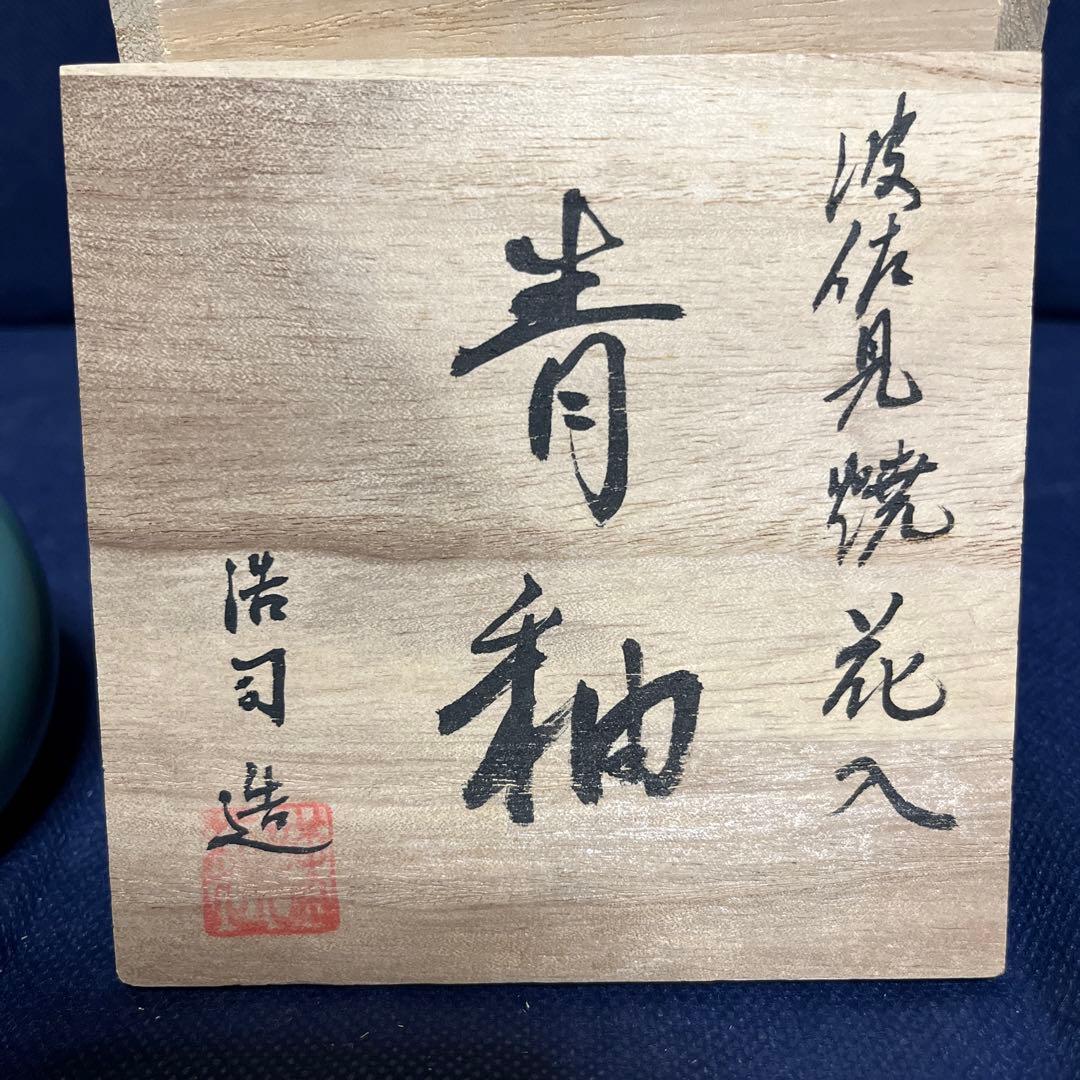 波佐見焼花入
青釉
浩司造